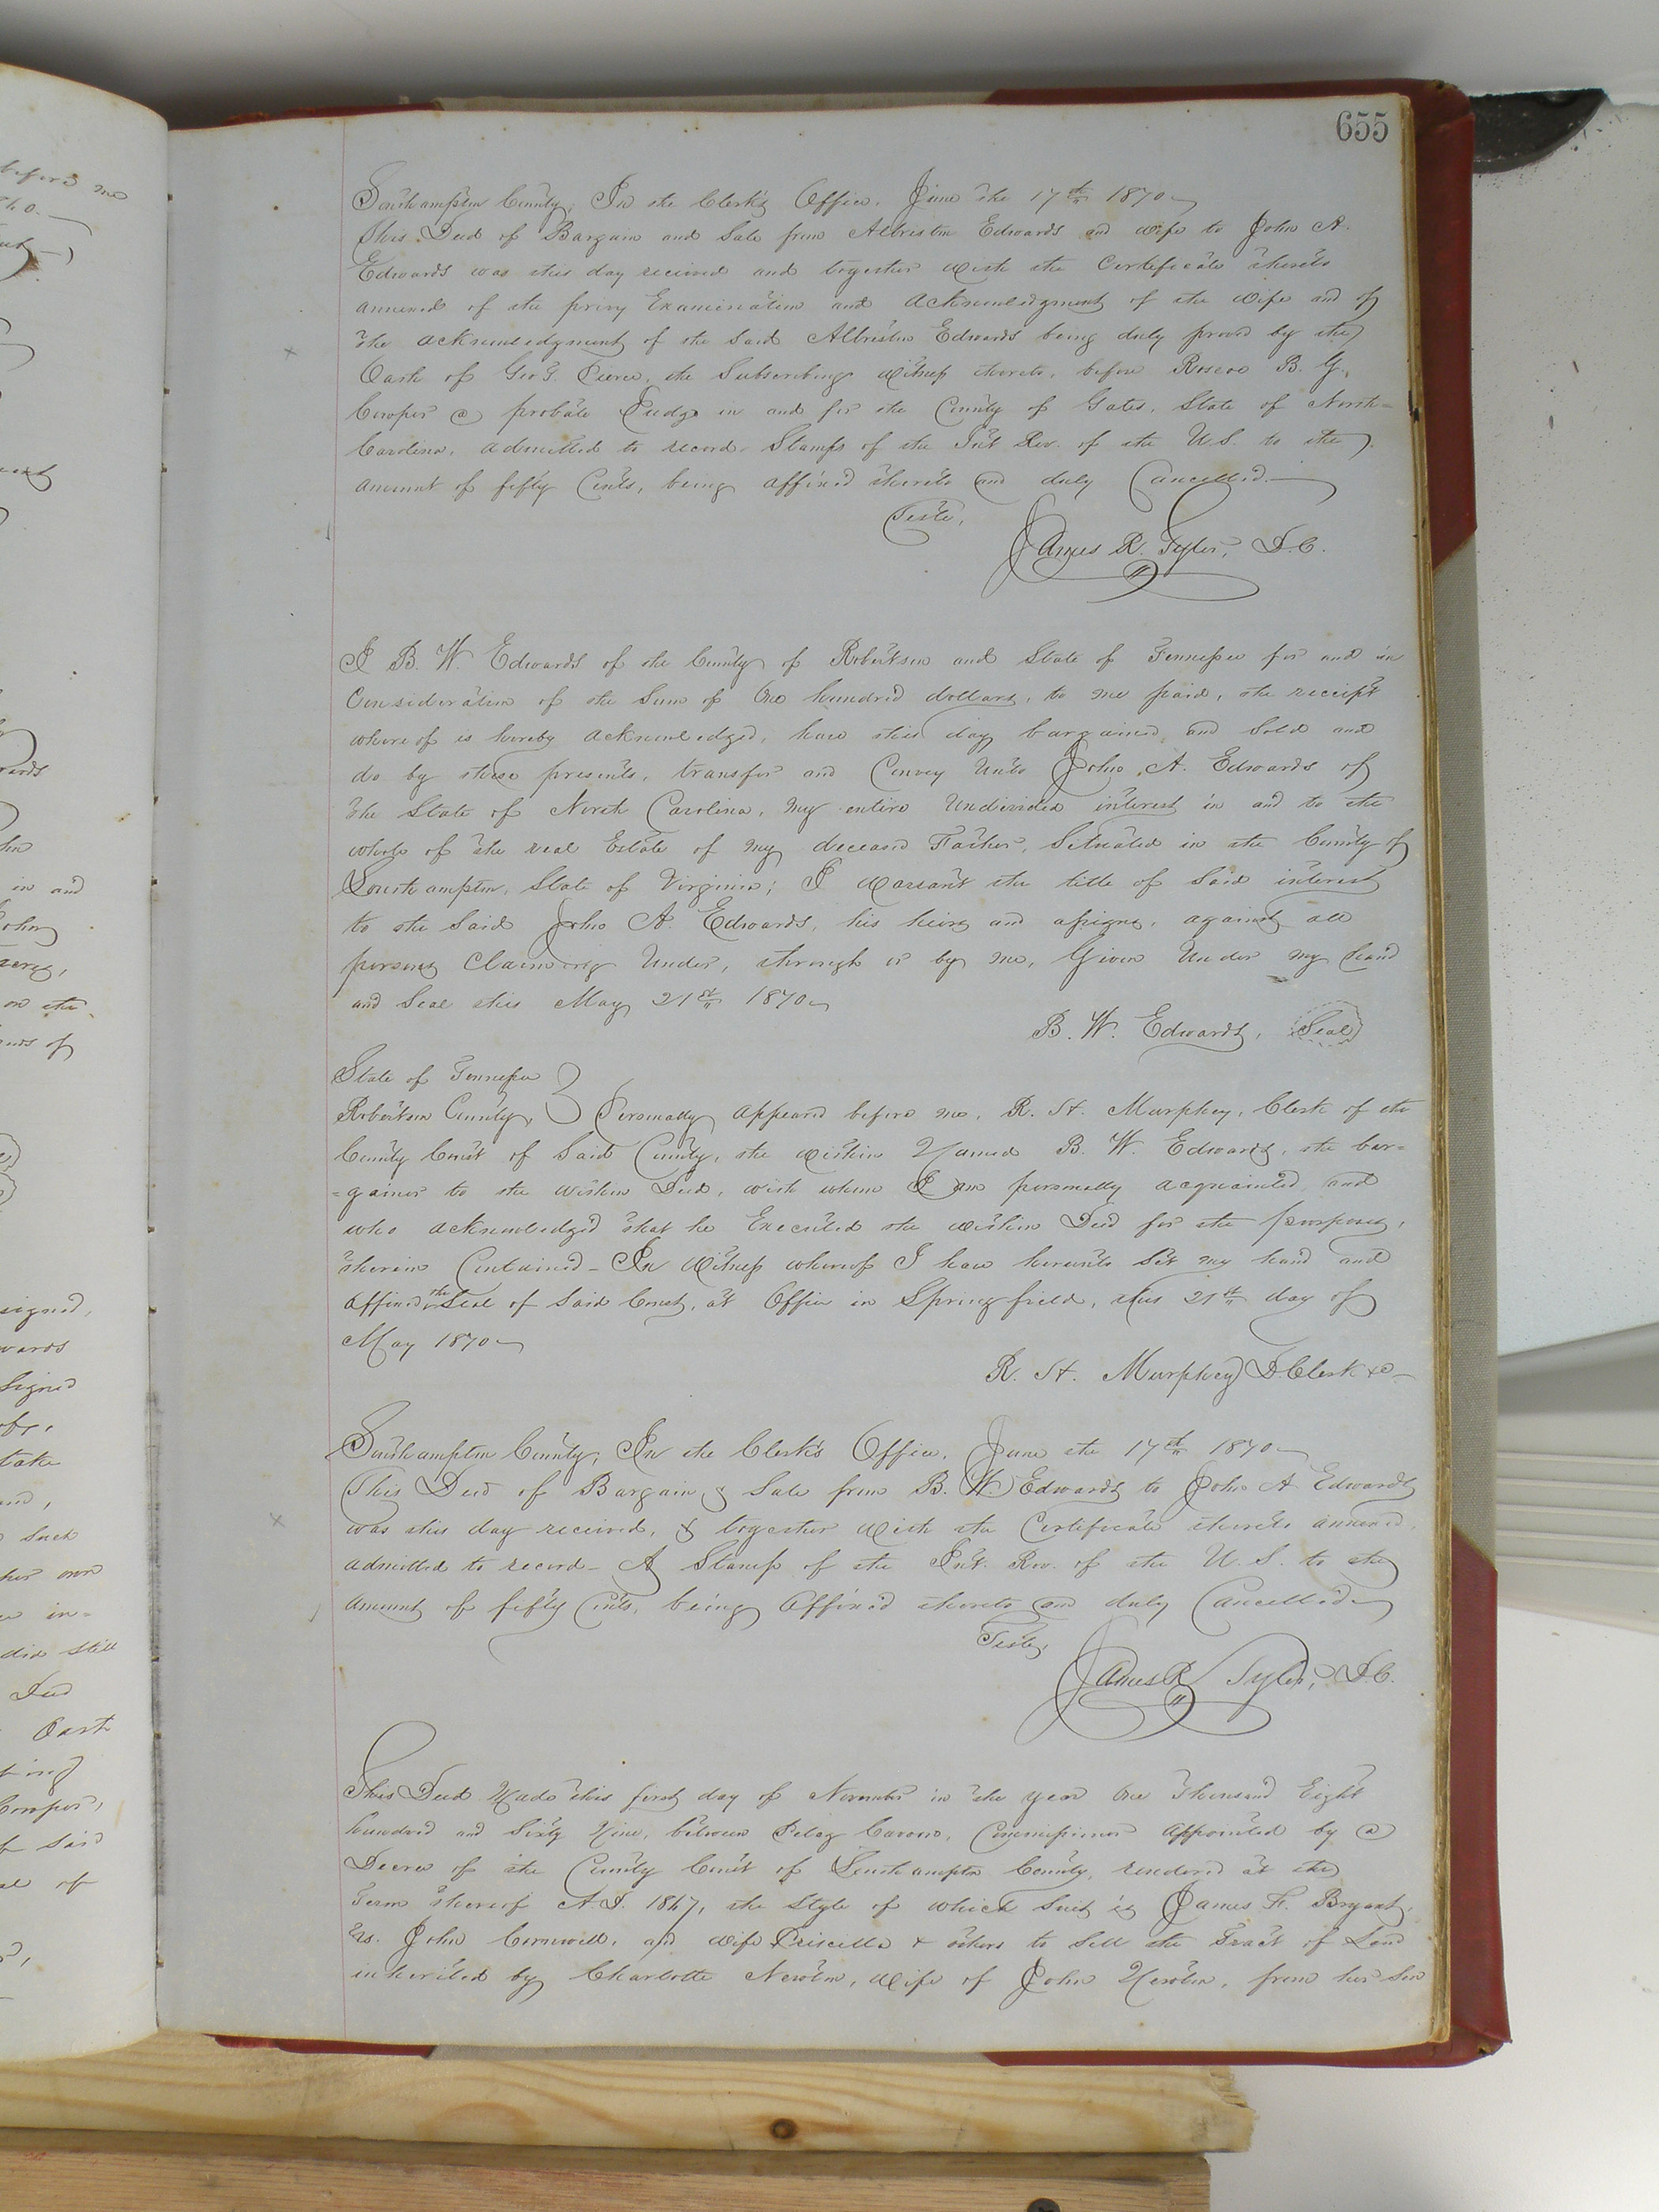 655
Southampton County, In the Clerk's Office, June the 17th 1870
This Deed of Bargain and Sale from Albriston Edwards and wife to John A.
Edwards was this day received and together with the Certificate thereto
annexed of the privy Examination and acknowledgment of the wife and of
the acknowledgment of the said Albriston Edwards being duly proved by the
Oath of Geo G. Pierce, the Subscribing witness thereto, before Roscoe B. G.
Cowper a probate Judge in and for the County of Gates, State of North-
Carolina, admitted to record. Stamps of the Int Rev. of the U.S. to the
amount of fifty Cents, being affixed thereto and duly Cancelled.
Teste,
James R. Tyler, D.C.
I B. W. Edwards of the County of Robertson and State of Tennessee for and in
Consideration of the Sum of One hundred dollars, to me paid, the receipt
whereof is hereby acknowledged, have this day bargained, and Sold and
do by these presents, transfer and Convey Unto John A. Edwards of
the State of North Carolina, my entire Undivided interest in and to the
whole of the real Estate of my deceased Father, Situated in the County of
Southampton, State of Virginia; I warrant the title of Said interest
to the Said John A. Edwards, his heirs and assigns, against all
persons Claiming Under, through or by me, Given Under my hand
and Seal this May 21st 1870
B. W. Edwards, Seal
State of Tennessee
Robertson County, } Personally appeared before me, R. H. Murphey, Clerk of the
County Court of Said County, the within Named B. W. Edwards, the bar=
=gainor to the within Deed, with whom I am personally acquainted and
who acknowledged that he Executed the within Deed for the purposes,
therein Contained - In Witness whereof I have hereunto Set my hand and
affixed the Seal of Said Court, at Office in Springfield, this 21st day of
May 1870
R. H. Murphey D. Clerk &c
Southampton County, In the Clerk's Office, June the 17th 1870
This Deed of Bargain & Sale from B. W. Edwards to John A Edwards
was this day received, & together with the Certificate thereto annexed,
admitted to record - A Stamp of the Int. Rev. of the U. S. to the
amount of fifty Cents, being Affixed thereto and duly Cancelled
Teste,
James R Tyler, D.C.
This Deed Made this first day of November in the year One Thousand Eight
hundred and Sixty Nine, between Commissioner appointed by a
Decree of the County Court of Southampton County, rendered at the
Term thereof A.D. 1867, the Style of which Suit is James F. Bryant
vs. John Cornwell, and wife Priscilla & others to Sell the Tract of Land
inherited by Charlotte Newton, wife of John Newton, from her Son